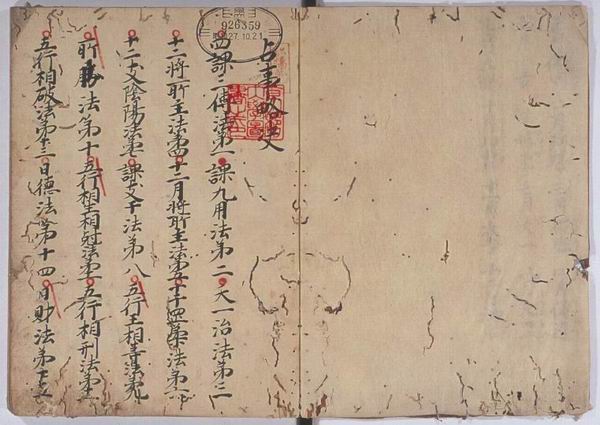 926359
27.10.21
占事略决
四課三傳法第一 課九用法第二 天一治法第三
十二將所主法第四 十二月將所主法第五 十干罡柔法第六
十二支陰陽法第七 課支干法第八 五行王相等法第九
所勝法第十 五行相生相尅法第十一 五行相刑法第十二
五行相破法第十三 日德法第十四 日財法第十五